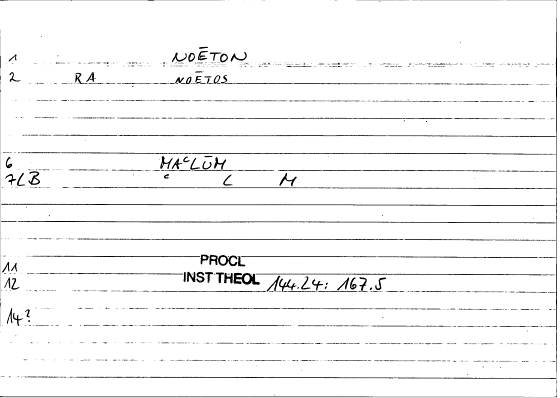 1 NOĒTON
2 RA NOĒTOS
6 MAᶜLŪM
7LB ᶜ L M
PROCL
11
INST THEOL 144.24: 167.5
12
14?